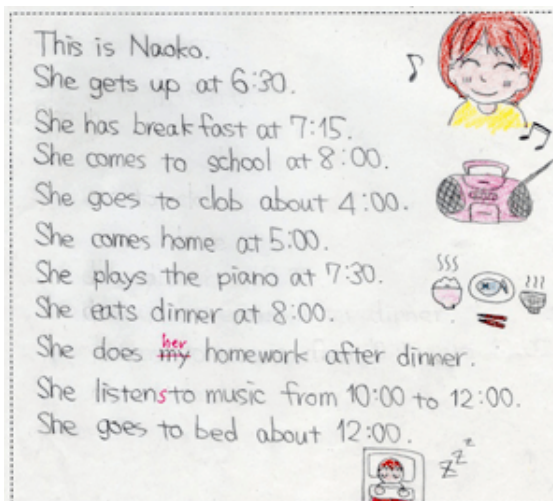 This is Naoko.
She gets up at 6:30.
She has breakfast at 7:15.
She comes to school at 8:00.
She goes to clob about 4:00.
She comes home at 5:00.
She plays the piano at 7:30.
She eats dinner at 8:00.
She does my her homework after dinner.
She listens to music from 10:00 to 12:00.
She goes to bed about 12:00.
zzz